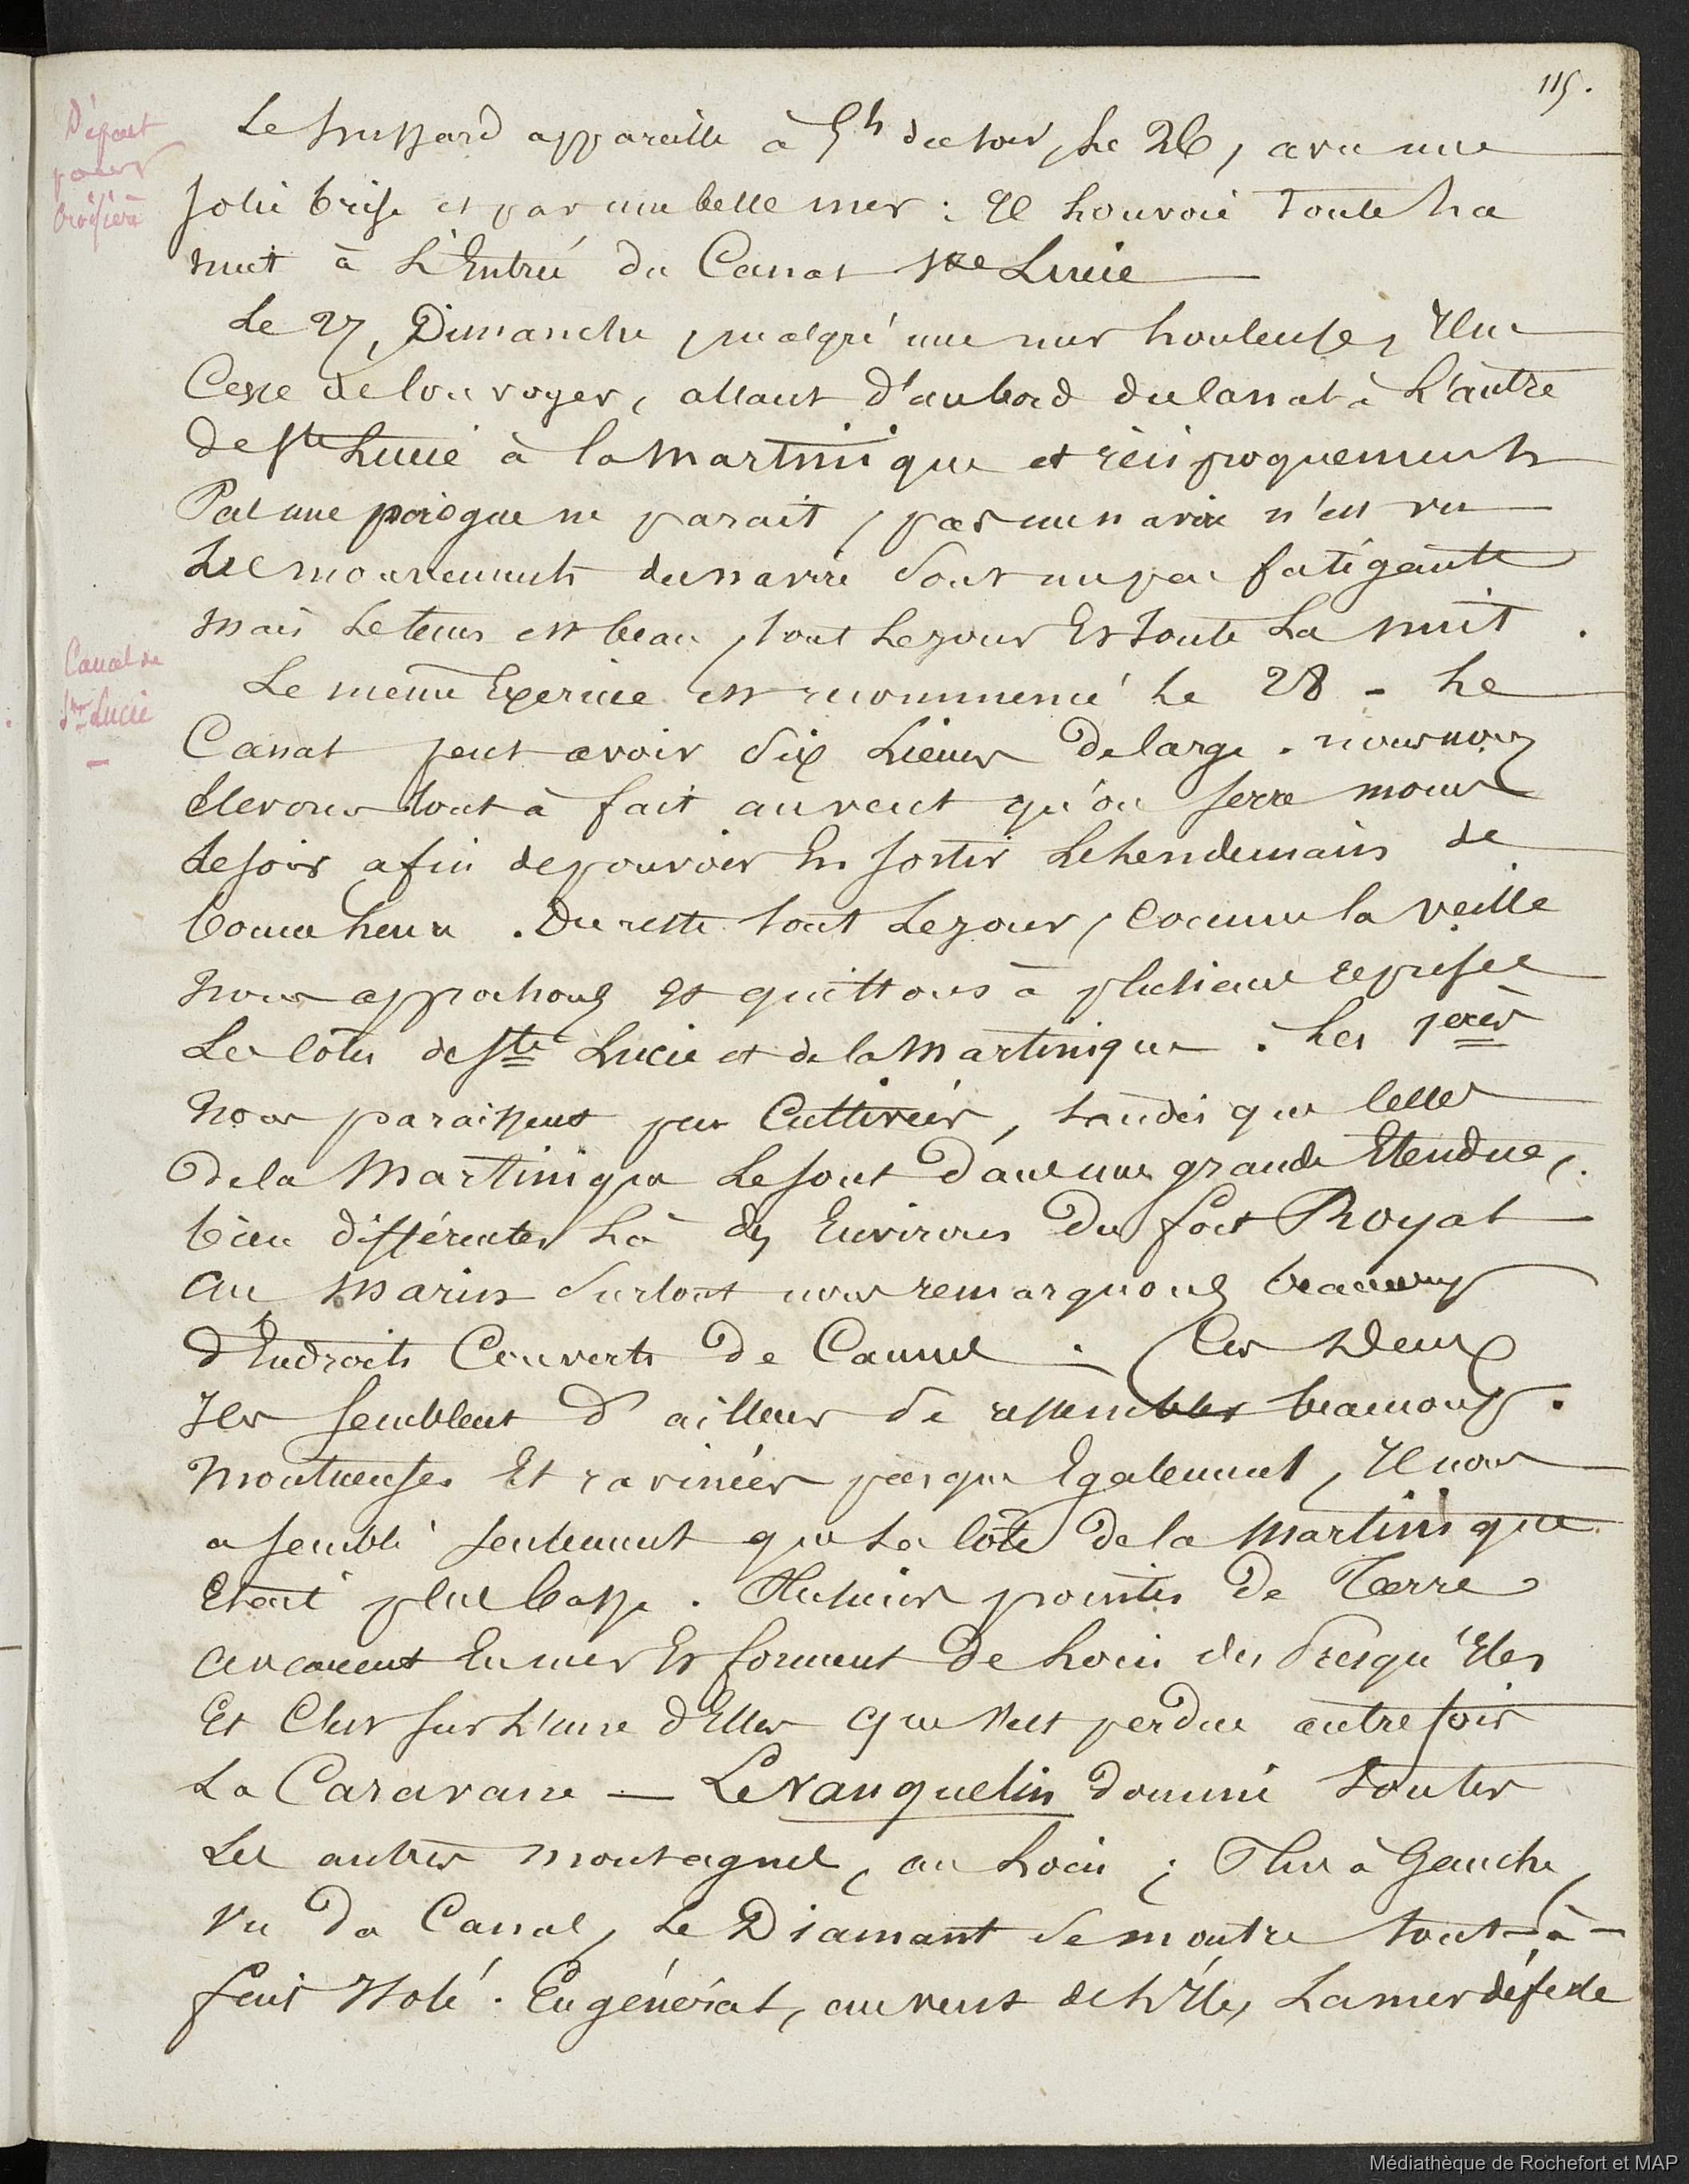 115.
Départ
pour
Croisière
Le hussard appareille à 5h du soir, le 26, avec une
jolie brise et par une belle mer : Il louvoie toute la
nuit à l'Entrée du Canal Ste Lucie
Le 27, Dimanche, malgré une mer houleuse, Il ne
Cesse de louvoyer, allant d'un bord du Canal à l'autre
de Ste Lucie à la Martinique et réciproquement
Pas une pirogue ne parait, pas un navire n'est vu
Les mouvements du navire sont un peu fatigants
mais le tems est beau, tout le jour Et toute la nuit.
Canal de
Ste Lucie
Le même Exercice est recommencé le 28 - Le
Canal peut avoir dix Lieues de large. nous nous
Elevons tout à fait au vent qu'on serre
le soir afin de pouvoir En sortir le lendemain de
bonne heure. Du reste tout le jour, comme la veille
nous approchons Et quittons à plusieurs reprises
Les côtes de Ste Lucie et de la Martinique. Les 1ères
nous paraissent peu Cultivées, tandis que celles
de la Martinique le sont dans une grande Etendue,
bien différentes là des Environs du fort Royal
Au Marin surtout nous remarquons beaucoup
d'Endroits Couverts de Cannes. Ces Deux
Iles semblent d'ailleurs se ressembler beaucoup.
Montueuses Et ravinées presque Egalement, Il nous
a semblé seulement que la Côte de la Martinique
Etait plus basse. Plusieurs pointes de Terre
avancent En mer Et forment de loin des Presqu'Iles
Et C'est sur l'une d'Elles que s'est perdue autrefois
La Caravane — Le Vauquelin domine toutes
Les autres montagnes, au loin ; Plus à Gauche,
vu du Canal, le Diamant se montre tout-à-
fait Isolé. En général, au vent de l'Ile, La mer déferle